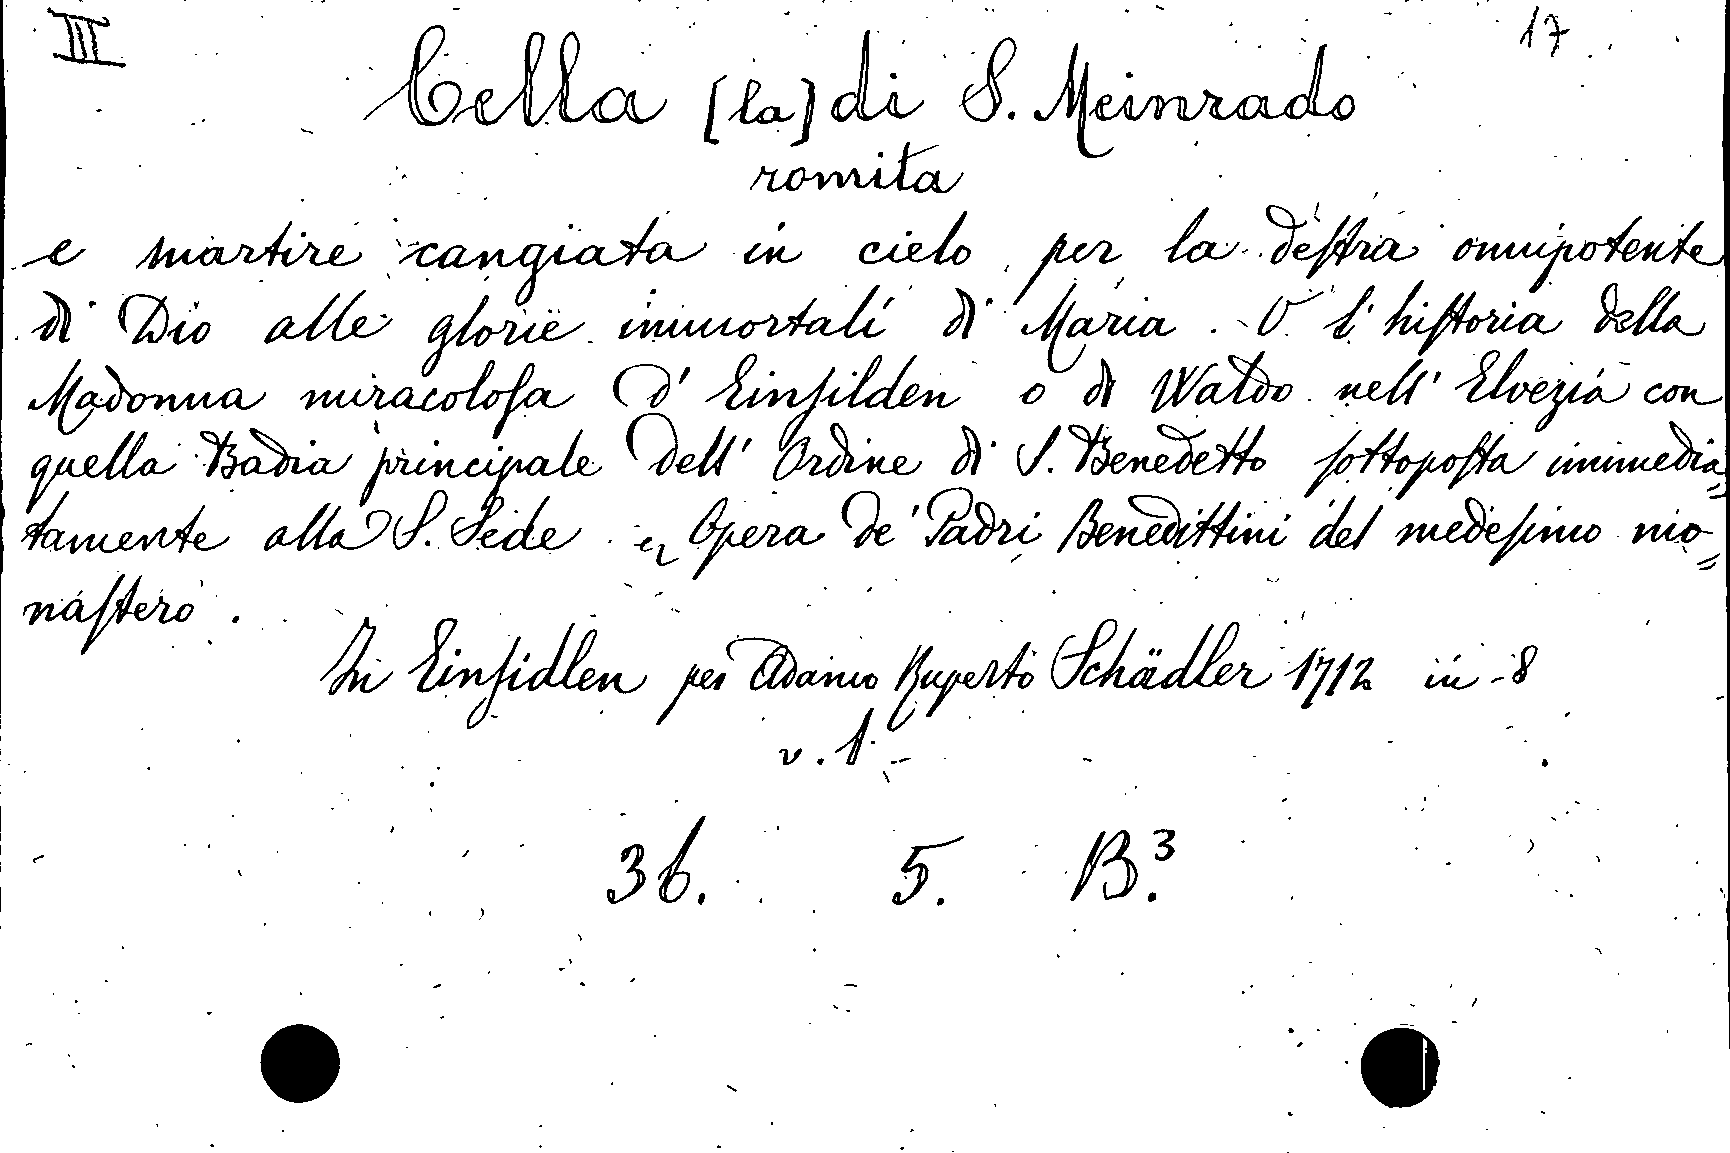 III 17
Cella [la] di S. Meinrado
romita
e martire cangiata in cielo per la deſtra omnipotente
di Dio alle glorie immortali di Maria. O l'hiſtoria della
Madonna miracoloſa d'Einſilden o di Waldo nell'Elvezia con
quella Badia principale dell'Ordine di S. Benedetto ſottopoſta immedia=
tamente alla S. Sede Opera de' Padri Benedittini del medeſimo mo=
naſtero.
In Einſidlen per Adamo Ruperto Schädler 1712 in-8
v. 1.
36. 5. B.³